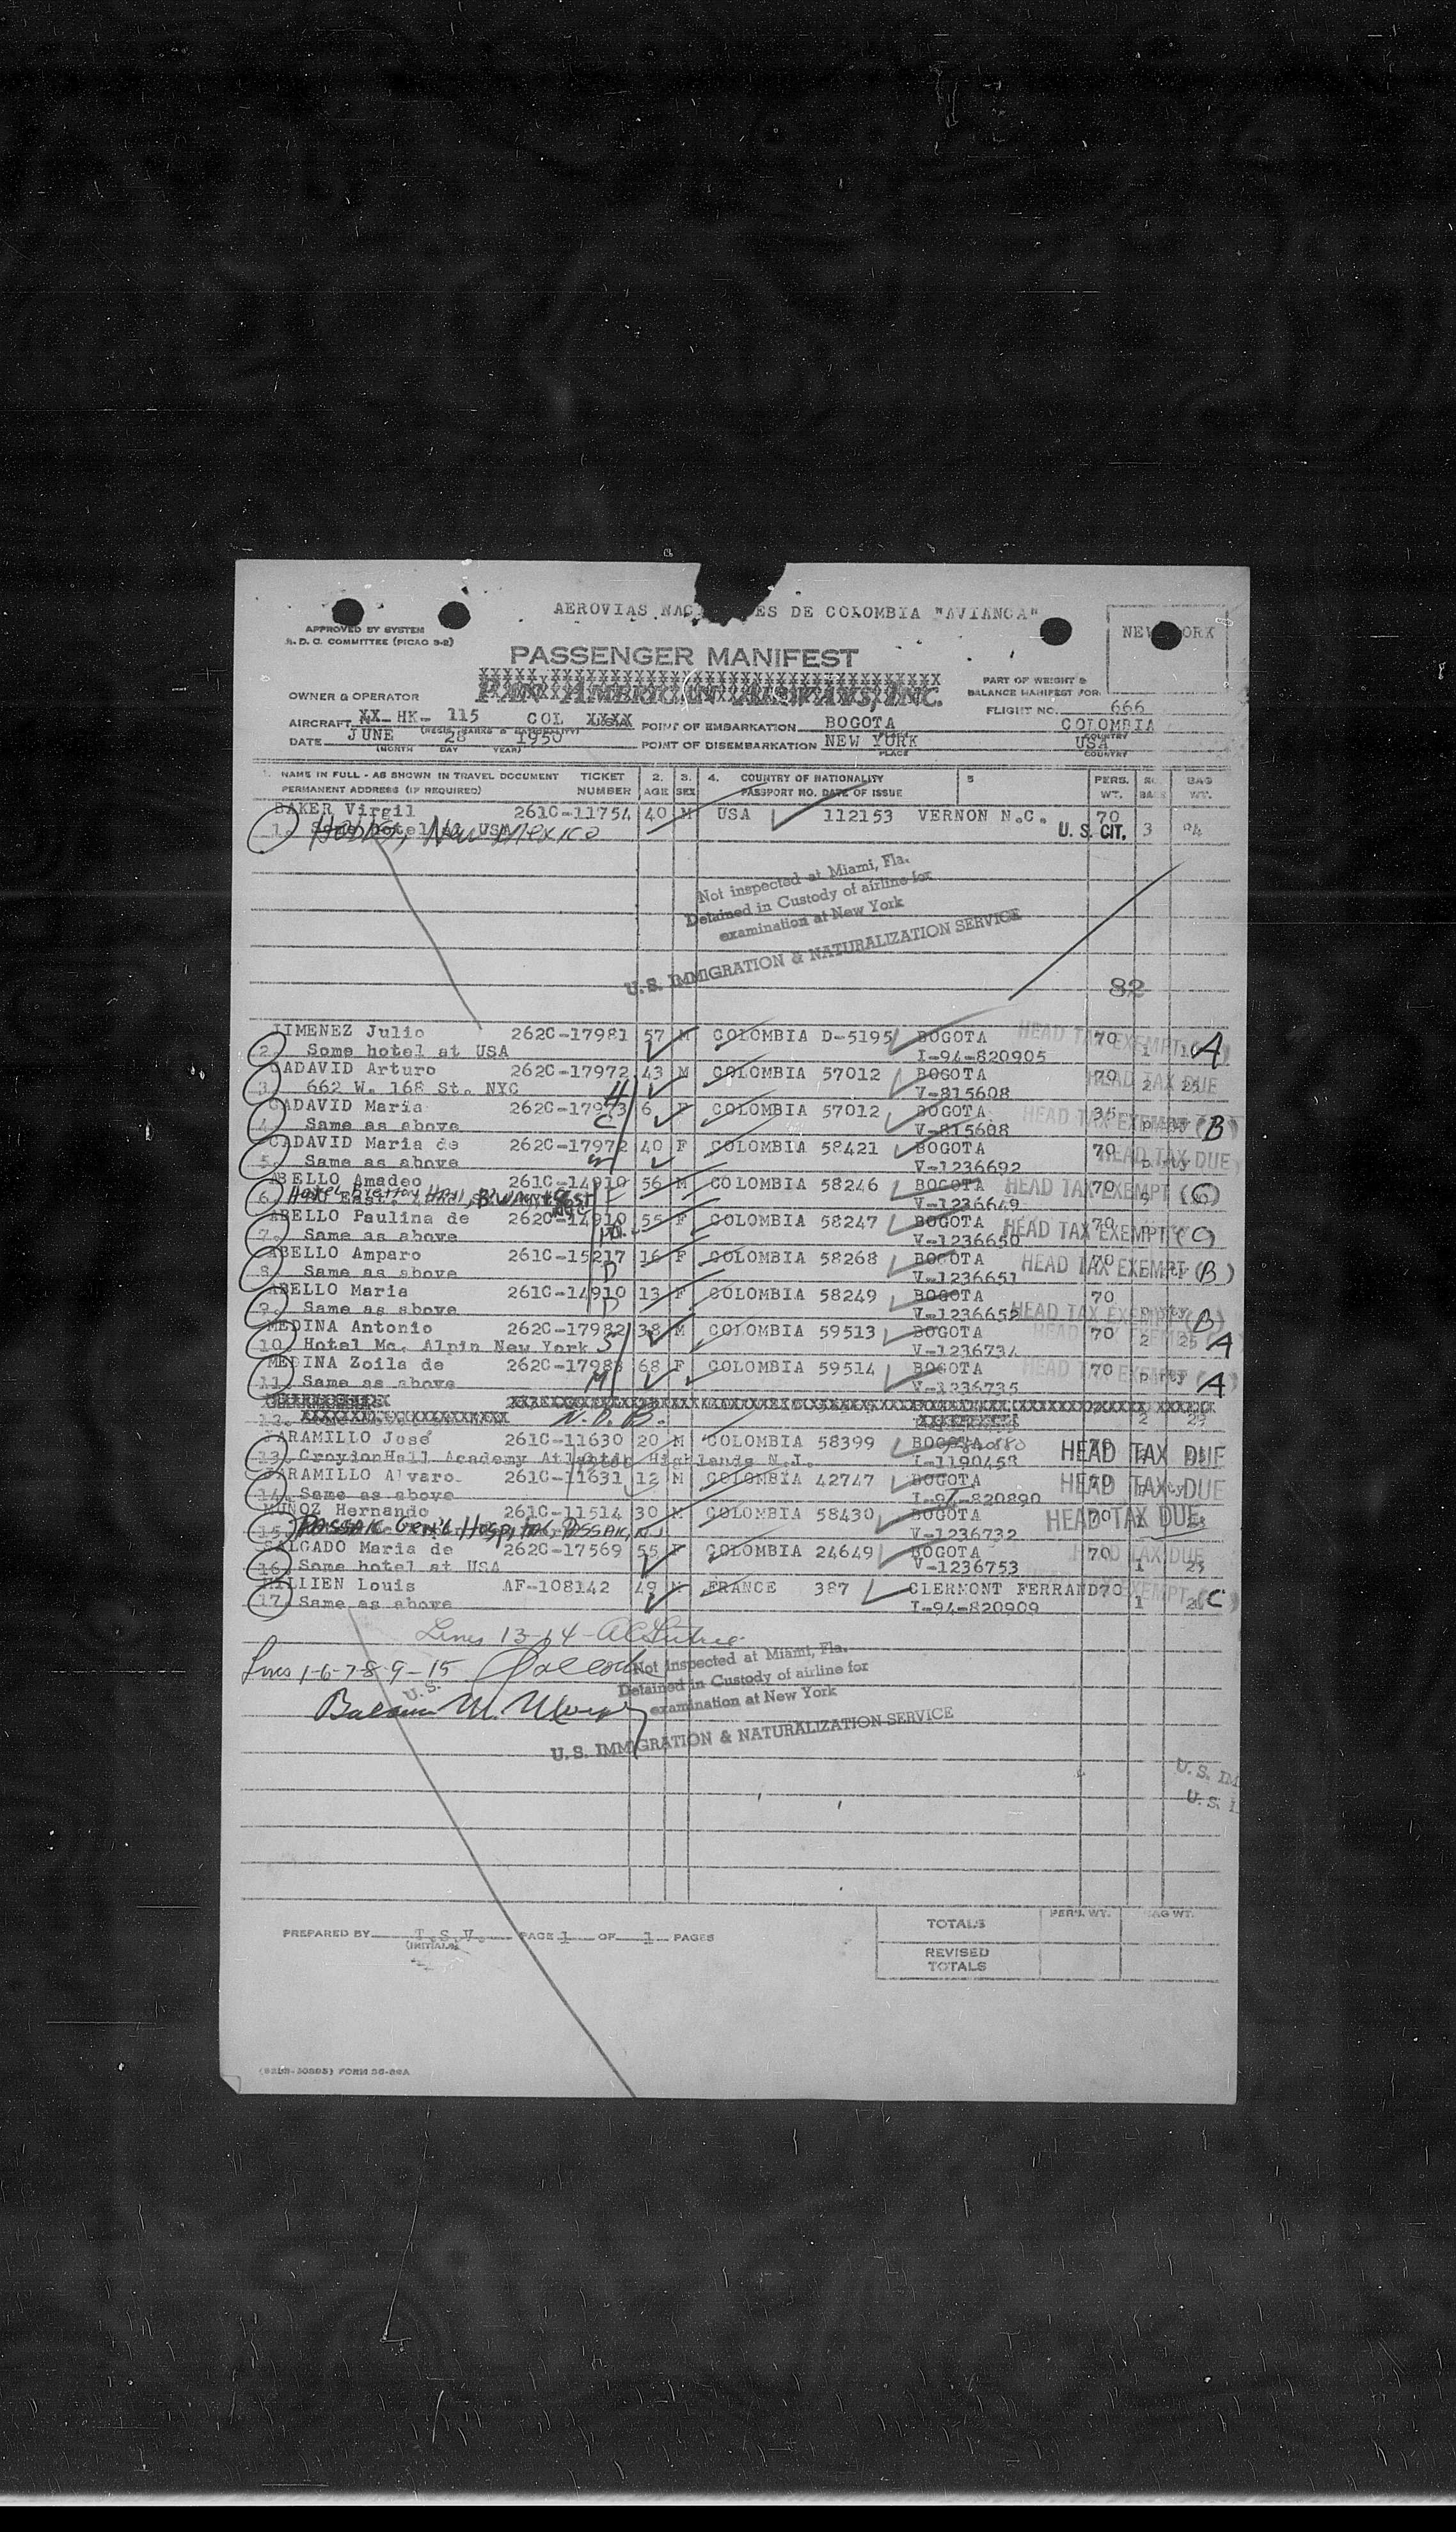 AEROVIAS NAC ES DE COLOMBIA "AVIANCA"
APPROVED BY SYSTEM
R. D. C. COMMITTEE (PICAO 9-2)
NEW YORK
PASSENGER MANIFEST
PAN AMERICAN AIRWAYS, INC.
PART OF WEIGHT &
BALANCE MANIFEST FOR
OWNER & OPERATOR
FLIGHT NO. 666
AIRCRAFT XX- HK- 115 COL XXXX POINT OF EMBARKATION BOGOTA COLOMBIA
(REGIS. MARKS & NATIONALITY) COUNTRY
DATE JUNE 28 1950 POINT OF DISEMBARKATION NEW YORK USA
(MONTH DAY YEAR) PLACE COUNTRY
1. NAME IN FULL - AS SHOWN IN TRAVEL DOCUMENT TICKET 2. 3. 4. COUNTRY OF NATIONALITY 5 PERS. NO. BAG
PERMANENT ADDRESS (IF REQUIRED) NUMBER AGE SEX PASSPORT NO. DATE OF ISSUE WT. BAGS WT.
BAKER Virgil 261C-11754 40 M USA 112153 VERNON N.C. 70
1. Hobbs, New Mexico U. S. CIT. 3 94
Not inspected at Miami, Fla.
Detained in Custody of airline for
examination at New York
U. S. IMMIGRATION & NATURALIZATION SERVICE
82
JIMENEZ Julio 262C-17981 57 M COLOMBIA D-5195 BOGOTA HEAD TAX EXEMPT 70
2. Some hotel at USA I-94-820905 1 A
CADAVID Arturo 262C-17972 43 M COLOMBIA 57012 BOGOTA 70 HEAD TAX DUE
3. 662 W. 168 St. NYC H V-815608 2 25
CADAVID Maria 262C-17973 6 F COLOMBIA 57012 BOGOTA HEAD TAX EXEMPT 35
4. Same as above C V-815608 (B)
CADAVID Maria de 262C-17972 40 F COLOMBIA 58421 BOGOTA 70 HEAD TAX DUE
5. Same as above V-1236692 p rty
ABELLO Amadeo 261C-14910 56 M COLOMBIA 58246 BOGOTA HEAD TAX EXEMPT (C) 70
6. V-1236649 5
ABELLO Paulina de 262C-14910 55 F COLOMBIA 58247 BOGOTA HEAD TAX EXEMPT (C) 70
7. Same as above V-1236650
ABELLO Amparo 261C-15217 16 F COLOMBIA 58268 BOGOTA HEAD TAX EXEMPT (B) 70
8. Same as above D V-1236651
ABELLO Maria 261C-14910 13 F COLOMBIA 58249 BOGOTA 70
9. Same as above D V-1236652 HEAD TAX EXEMPT (B)
MEDINA Antonio 262C-17982 38 M COLOMBIA 59513 BOGOTA HEAD 70
10. Hotel Mc. Alpin New York S V-1236734 2 25 A
MEDINA Zoila de 262C-17983 68 F COLOMBIA 59514 BOGOTA HEAD TAX EXEMPT 70
11. Same as above M V-1236735 p rty A
12. N.O.B. 2 25
JARAMILLO José 261C-11630 20 M COLOMBIA 58399 BOGOTA HEAD TAX DUE
13. CroydonHall Academy Atlantic Highlands N.J. I-1190458
JARAMILLO Alvaro 261C-11631 12 M COLOMBIA 42747 BOGOTA HEAD TAX DUE
14. Same as above I-94-820890
MUÑOZ Hernando 261C-11514 30 M COLOMBIA 58430 BOGOTA HEAD TAX DUE 70
15. PASSAIC Gen'l Hospital PASSAIC, NJ V-1236732 1
SALGADO Maria de 262C-17569 55 F COLOMBIA 24649 BOGOTA 70 HEAD TAX DUE
16. Some hotel at USA V-1236753 1 25
HILLIEN Louis AF-108142 49 M FRANCE 387 CLERMONT FERRAND 70
17. Same as above I-94-820909 1 C
Lines 13-14-
Lines 1-6-7-8-9-15
Not inspected at Miami, Fla.
Detained in Custody of airline for
examination at New York
U. S.
U. S. IMMIGRATION & NATURALIZATION SERVICE
U. S. IM
U. S. I
PREPARED BY T.S.V. PAGE 1 OF 1 PAGES
(INITIALS)
PERS. WT. BAG WT.
TOTALS
REVISED
TOTALS